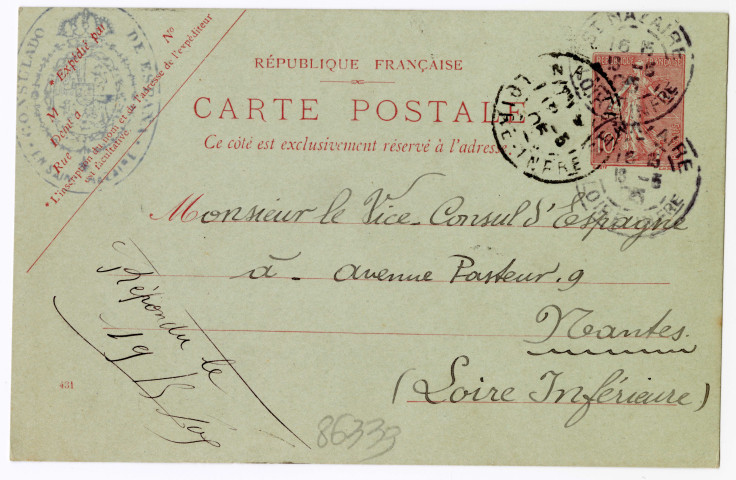 CONSULADO DE ESPAÑA
Nº
* Expédié par
M
Dom^t à
Rue
* L'inscription du nom et de l'adresse de l'expéditeur
est facultative.
RÉPUBLIQUE FRANÇAISE
CARTE POSTALE
Ce côté est exclusivement réservé à l'adresse
ST NAZAIRE
LOIRE-INFRE
NANTES
LOIRE-INFRE
10
Monsieur le Vice-Consul d'Espagne
à - avenue Pasteur. 9
Nantes.
(Loire Inférieure)
Répondu le
19/5/05
431
86333